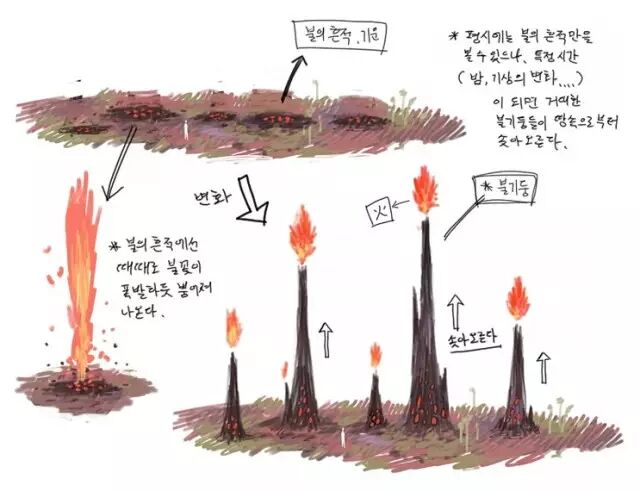 불의 흔적, 기운
* 평시에는 불의 흔적만을
볼 수 있으나, 특정시간
(밤, 기상의 변화....)
이 되면 거대한
불기둥들이 땅속으로부터
솟아오른다.
변화
* 불의 흔적에선
때때로 불꽃이
폭발하듯 뿜어져
나온다.
火
* 불기둥
솟아오른다